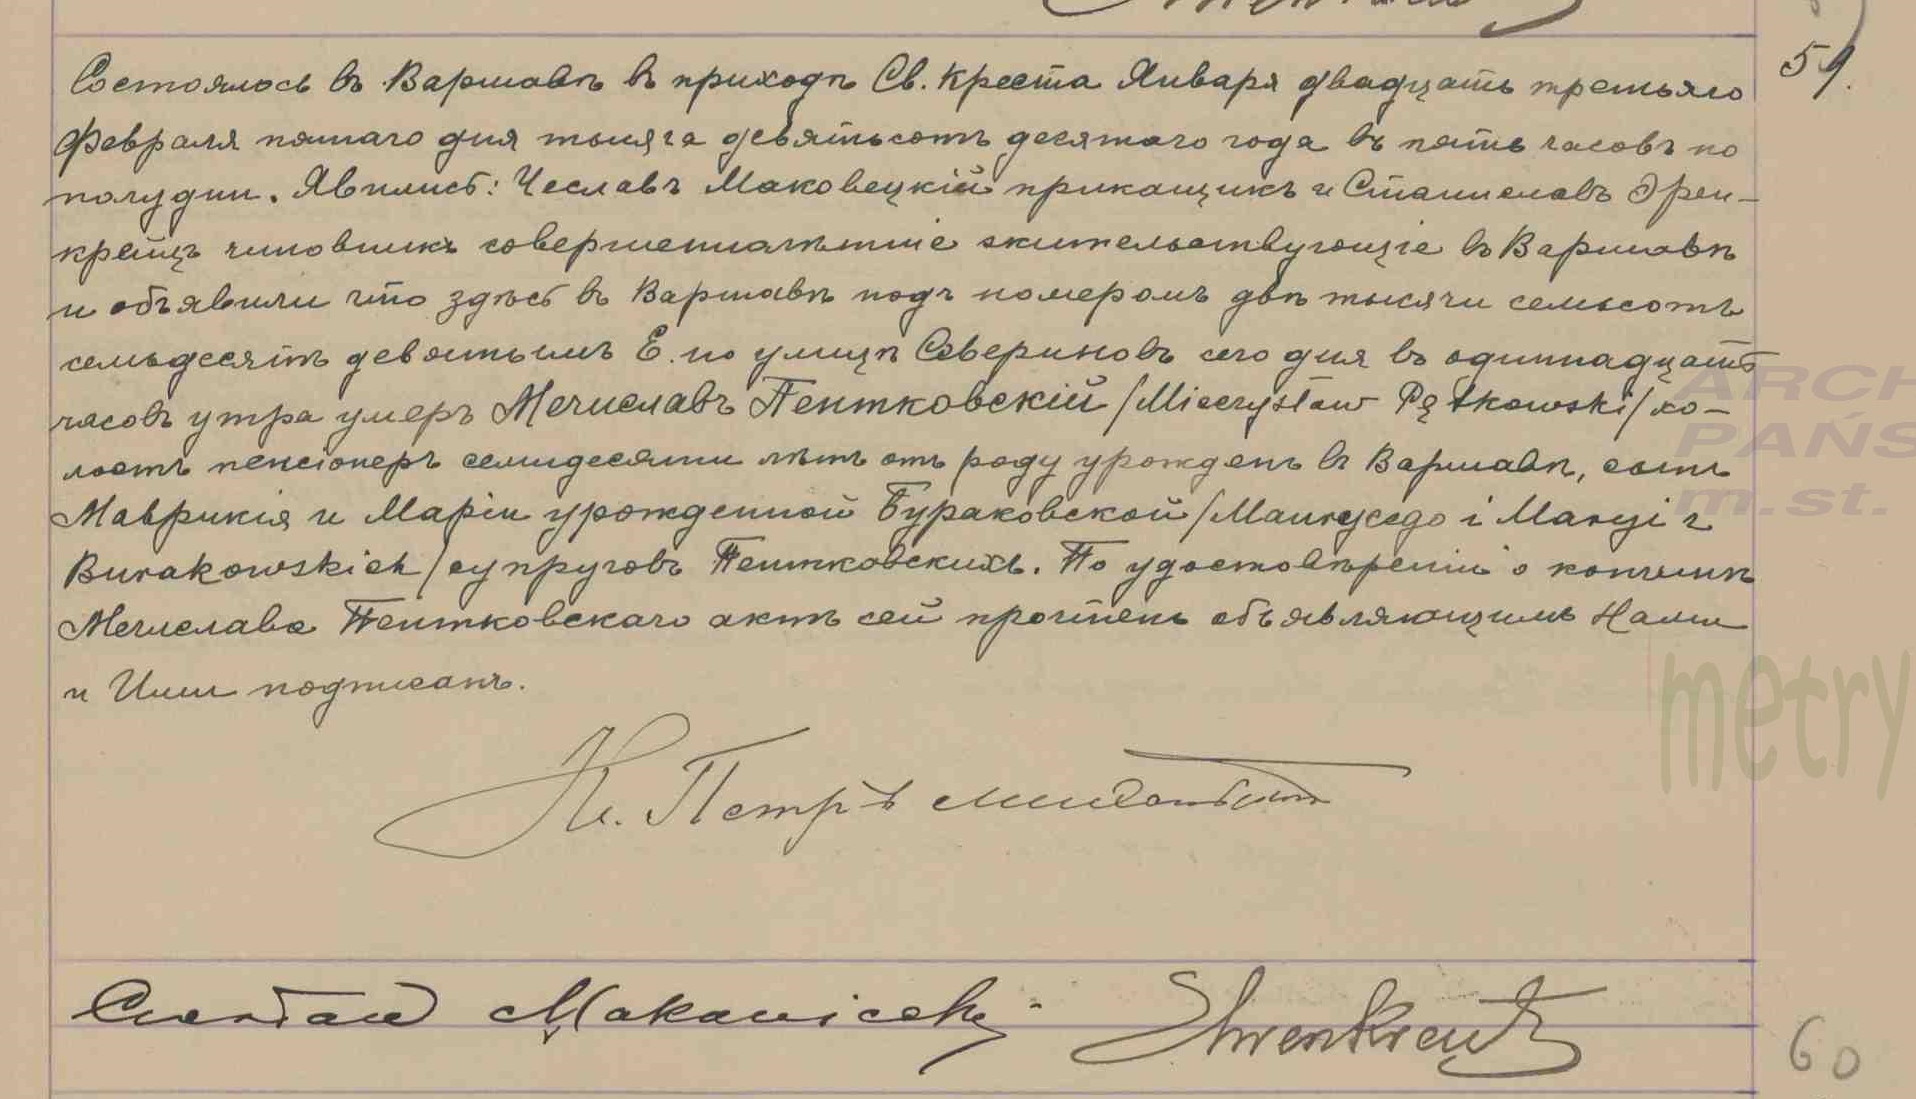 59.
Состоялось въ Варшавѣ въ приходѣ Св. Креста Января двадцать третьяго
Февраля пятаго дня тысяча девятьсотъ десятаго года въ пять часовъ по
полудни. Явились: Чеславъ Маковецкій прикащикъ и Станиславъ Эрен-
крейцъ чиновникъ совершеннолѣтніе жительствующіе въ Варшавѣ
и объявили что здѣсь въ Варшавѣ подъ номеромъ двѣ тысячи семьсотъ
семьдесятъ девятымъ Е. по улицѣ Севериновъ сего дня въ одиннадцать
часовъ утра умеръ Мечиславъ Пентковскій /Mieczysław Pętkowski/ хо-
лостъ пенсіонеръ семидесяти лѣтъ отъ роду урожденъ въ Варшавѣ, сынъ
Маврикія и Маріи урожденной Бураковской /Maurycego i Maryi z
Burakowskich/ супруговъ Пентковскихъ. По удостовѣреніи о кончинѣ
Мечислава Пентковскаго актъ сей прочтенъ объявляющимъ Нами
и Ими подписанъ.
Петръ
Czesław Makowiecki Ehrenkreutz
60
ARCH
PAŃS
m.st.
metry